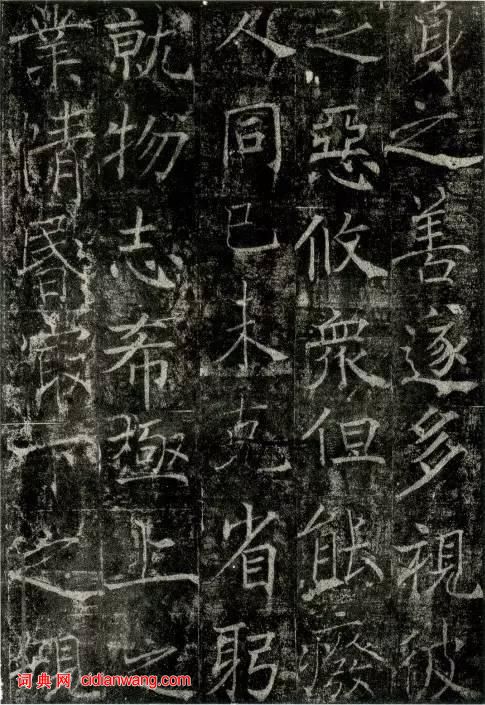 身之善遂多視彼
之惡攸衆但能癈
人同已未克省躬
就物志希極上之
業情昬㝡下之
词典网 cidianwang.com